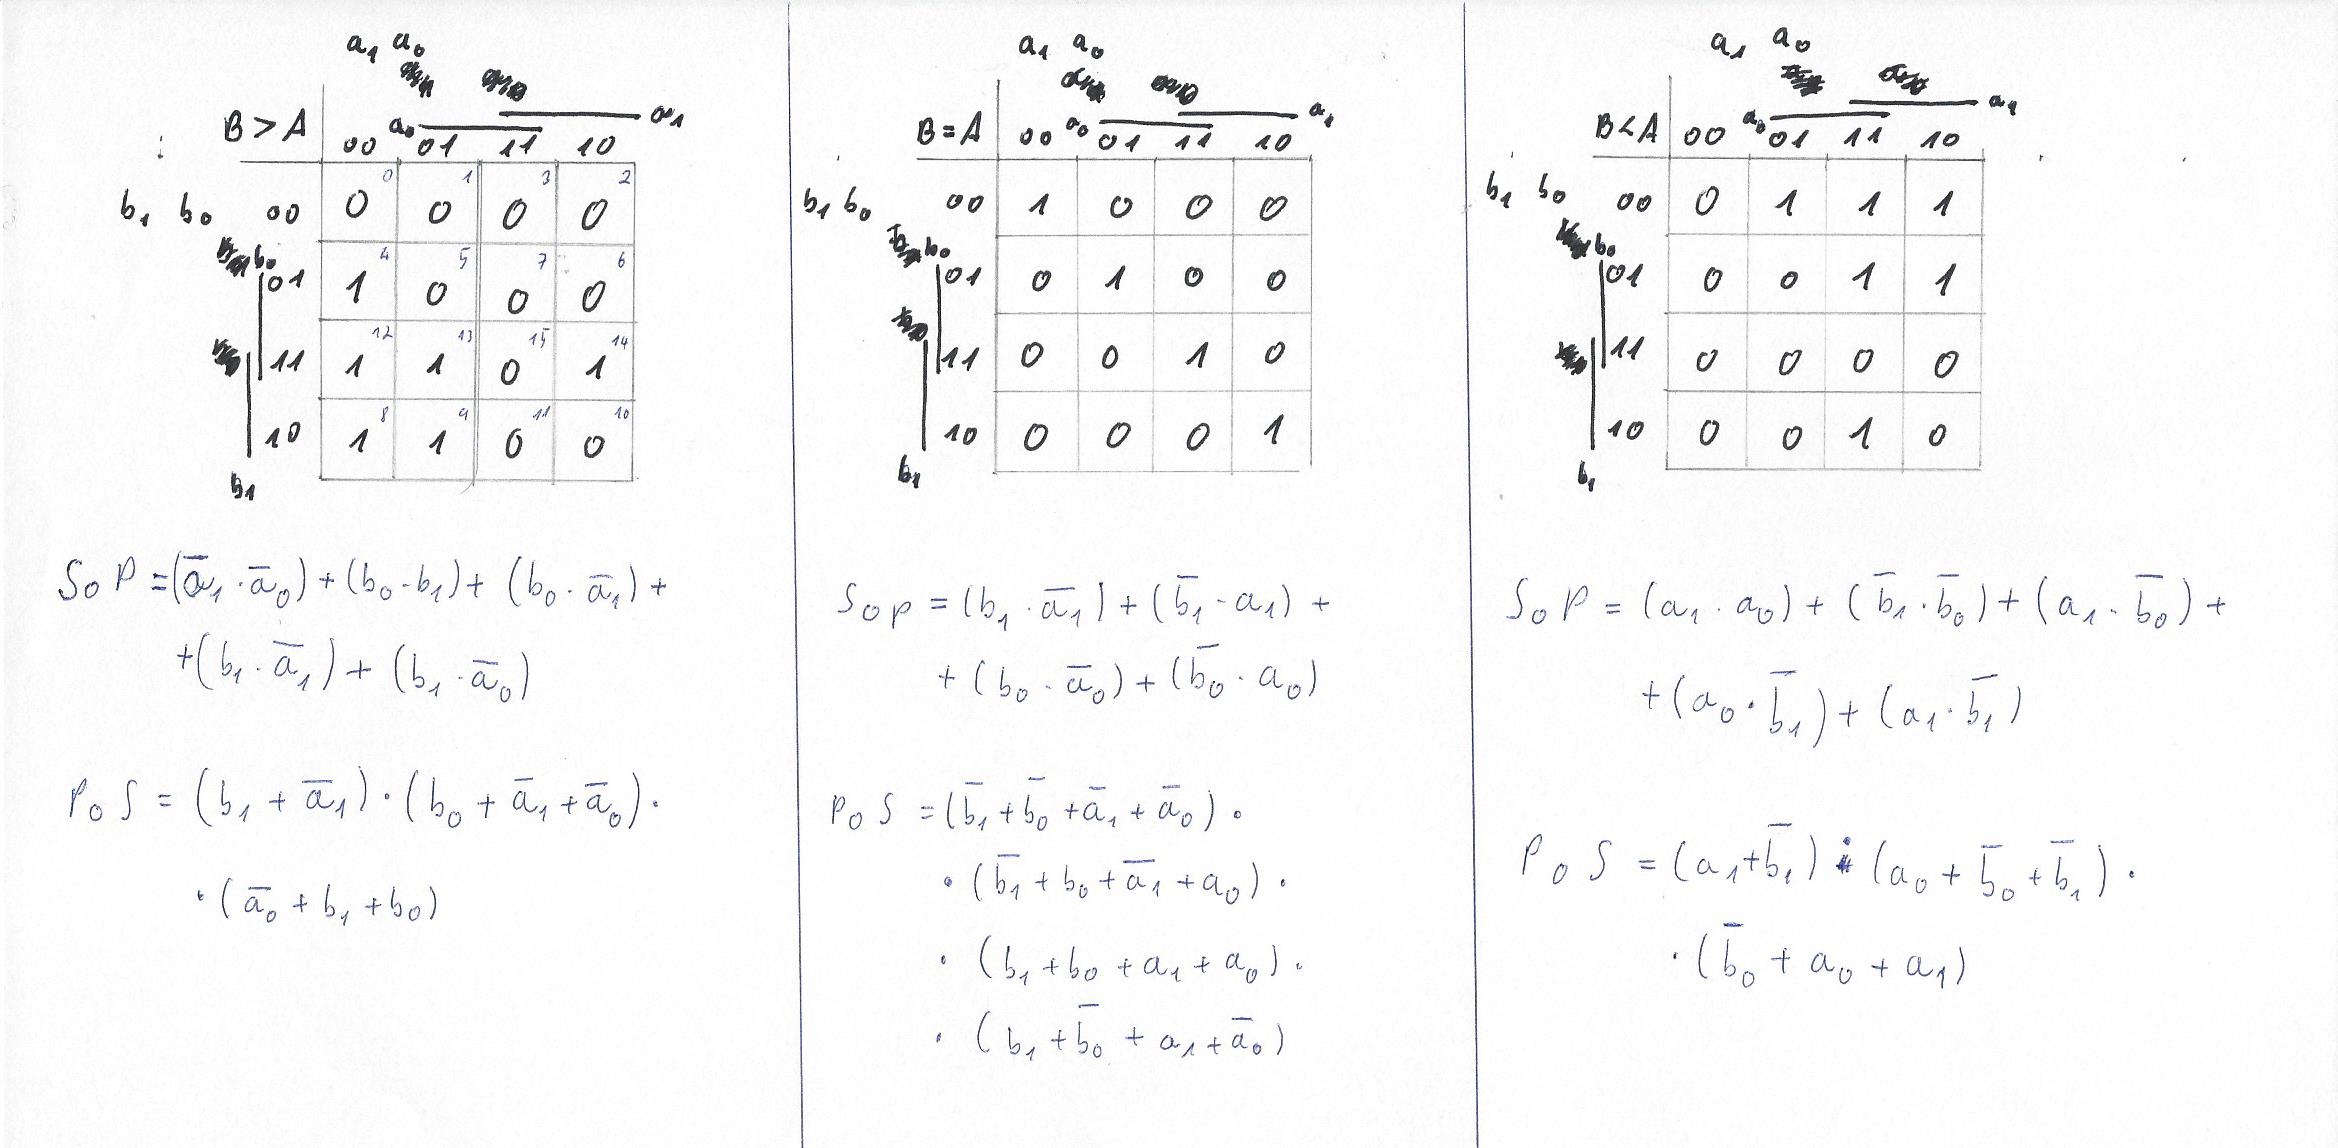 a₁ a₀
a₁
B > A a₀
00 01 11 10
b₁ b₀ 00 0 0 0 1 0 3 0 2
b₀
01 1 4 0 5 0 7 0 6
11 1 12 1 13 0 15 1 14
10 1 8 1 9 0 11 0 10
b₁
SoP = (a̅₁ · a̅₀) + (b₀ · b₁) + (b₀ · a̅₁) +
+ (b₁ · a̅₁) + (b₁ · a̅₀)
PoS = (b₁ + a̅₁) · (b₀ + a̅₁ + a̅₀) ·
· (a̅₀ + b₁ + b₀)
a₁ a₀
a₁
B = A a₀
00 01 11 10
b₁ b₀ 00 1 0 0 0
b₀
01 0 1 0 0
11 0 0 1 0
10 0 0 0 1
b₁
SoP = (b₁ · a̅₁) + (b̅₁ · a₁) +
+ (b₀ · a̅₀) + (b̅₀ · a₀)
PoS = (b̅₁ + b̅₀ + a̅₁ + a̅₀) ·
· (b̅₁ + b₀ + a̅₁ + a₀) ·
· (b₁ + b₀ + a₁ + a₀) ·
· (b₁ + b̅₀ + a₁ + a̅₀)
a₁ a₀
a₁
B < A a₀
00 01 11 10
b₁ b₀ 00 0 1 1 1
b₀
01 0 0 1 1
11 0 0 0 0
10 0 0 1 0
b₁
SoP = (a₁ · a₀) + (b̅₁ · b̅₀) + (a₁ · b̅₀) +
+ (a₀ · b̅₁) + (a₁ · b̅₁)
PoS = (a₁ + b̅₁) · (a₀ + b̅₀ + b̅₁) ·
· (b̅₀ + a₀ + a₁)